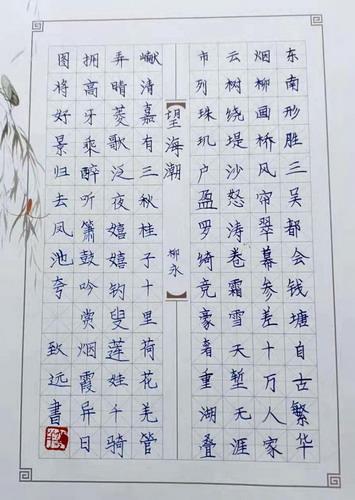 东南形胜三吴都会钱塘自古繁华
烟柳画桥风帘翠幕参差十万人家
云树绕堤沙怒涛卷霜雪天堑无涯
市列珠玑户盈罗绮竞豪奢重湖叠
望海潮 柳永
𪩘清嘉有三秋桂子十里荷花羌管
弄晴菱歌泛夜嬉嬉钓叟莲娃千骑
拥高牙乘醉听箫鼓吟赏烟霞异日
图将好景归去凤池夸 致远書